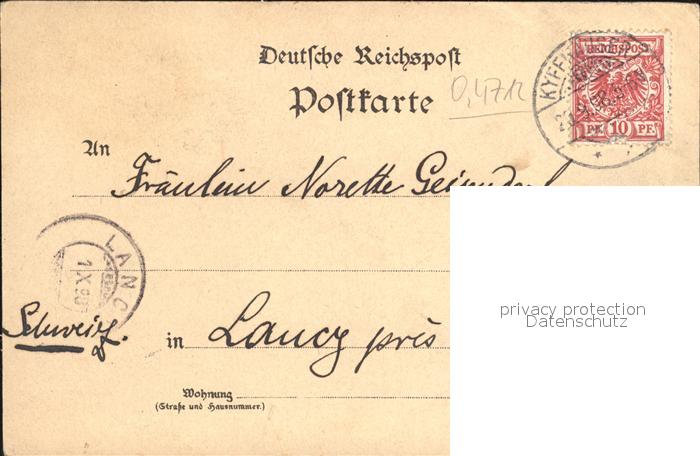 Deutsche Reichspost
Postkarte
0,4712
REICHSPOST
PF. 10 PF.
An
Fräulein Norette
LANC
1 X 98
Schweiz.
in Lancy près
Wohnung
(Straße und Hausnummer.)
privacy protection
Datenschutz